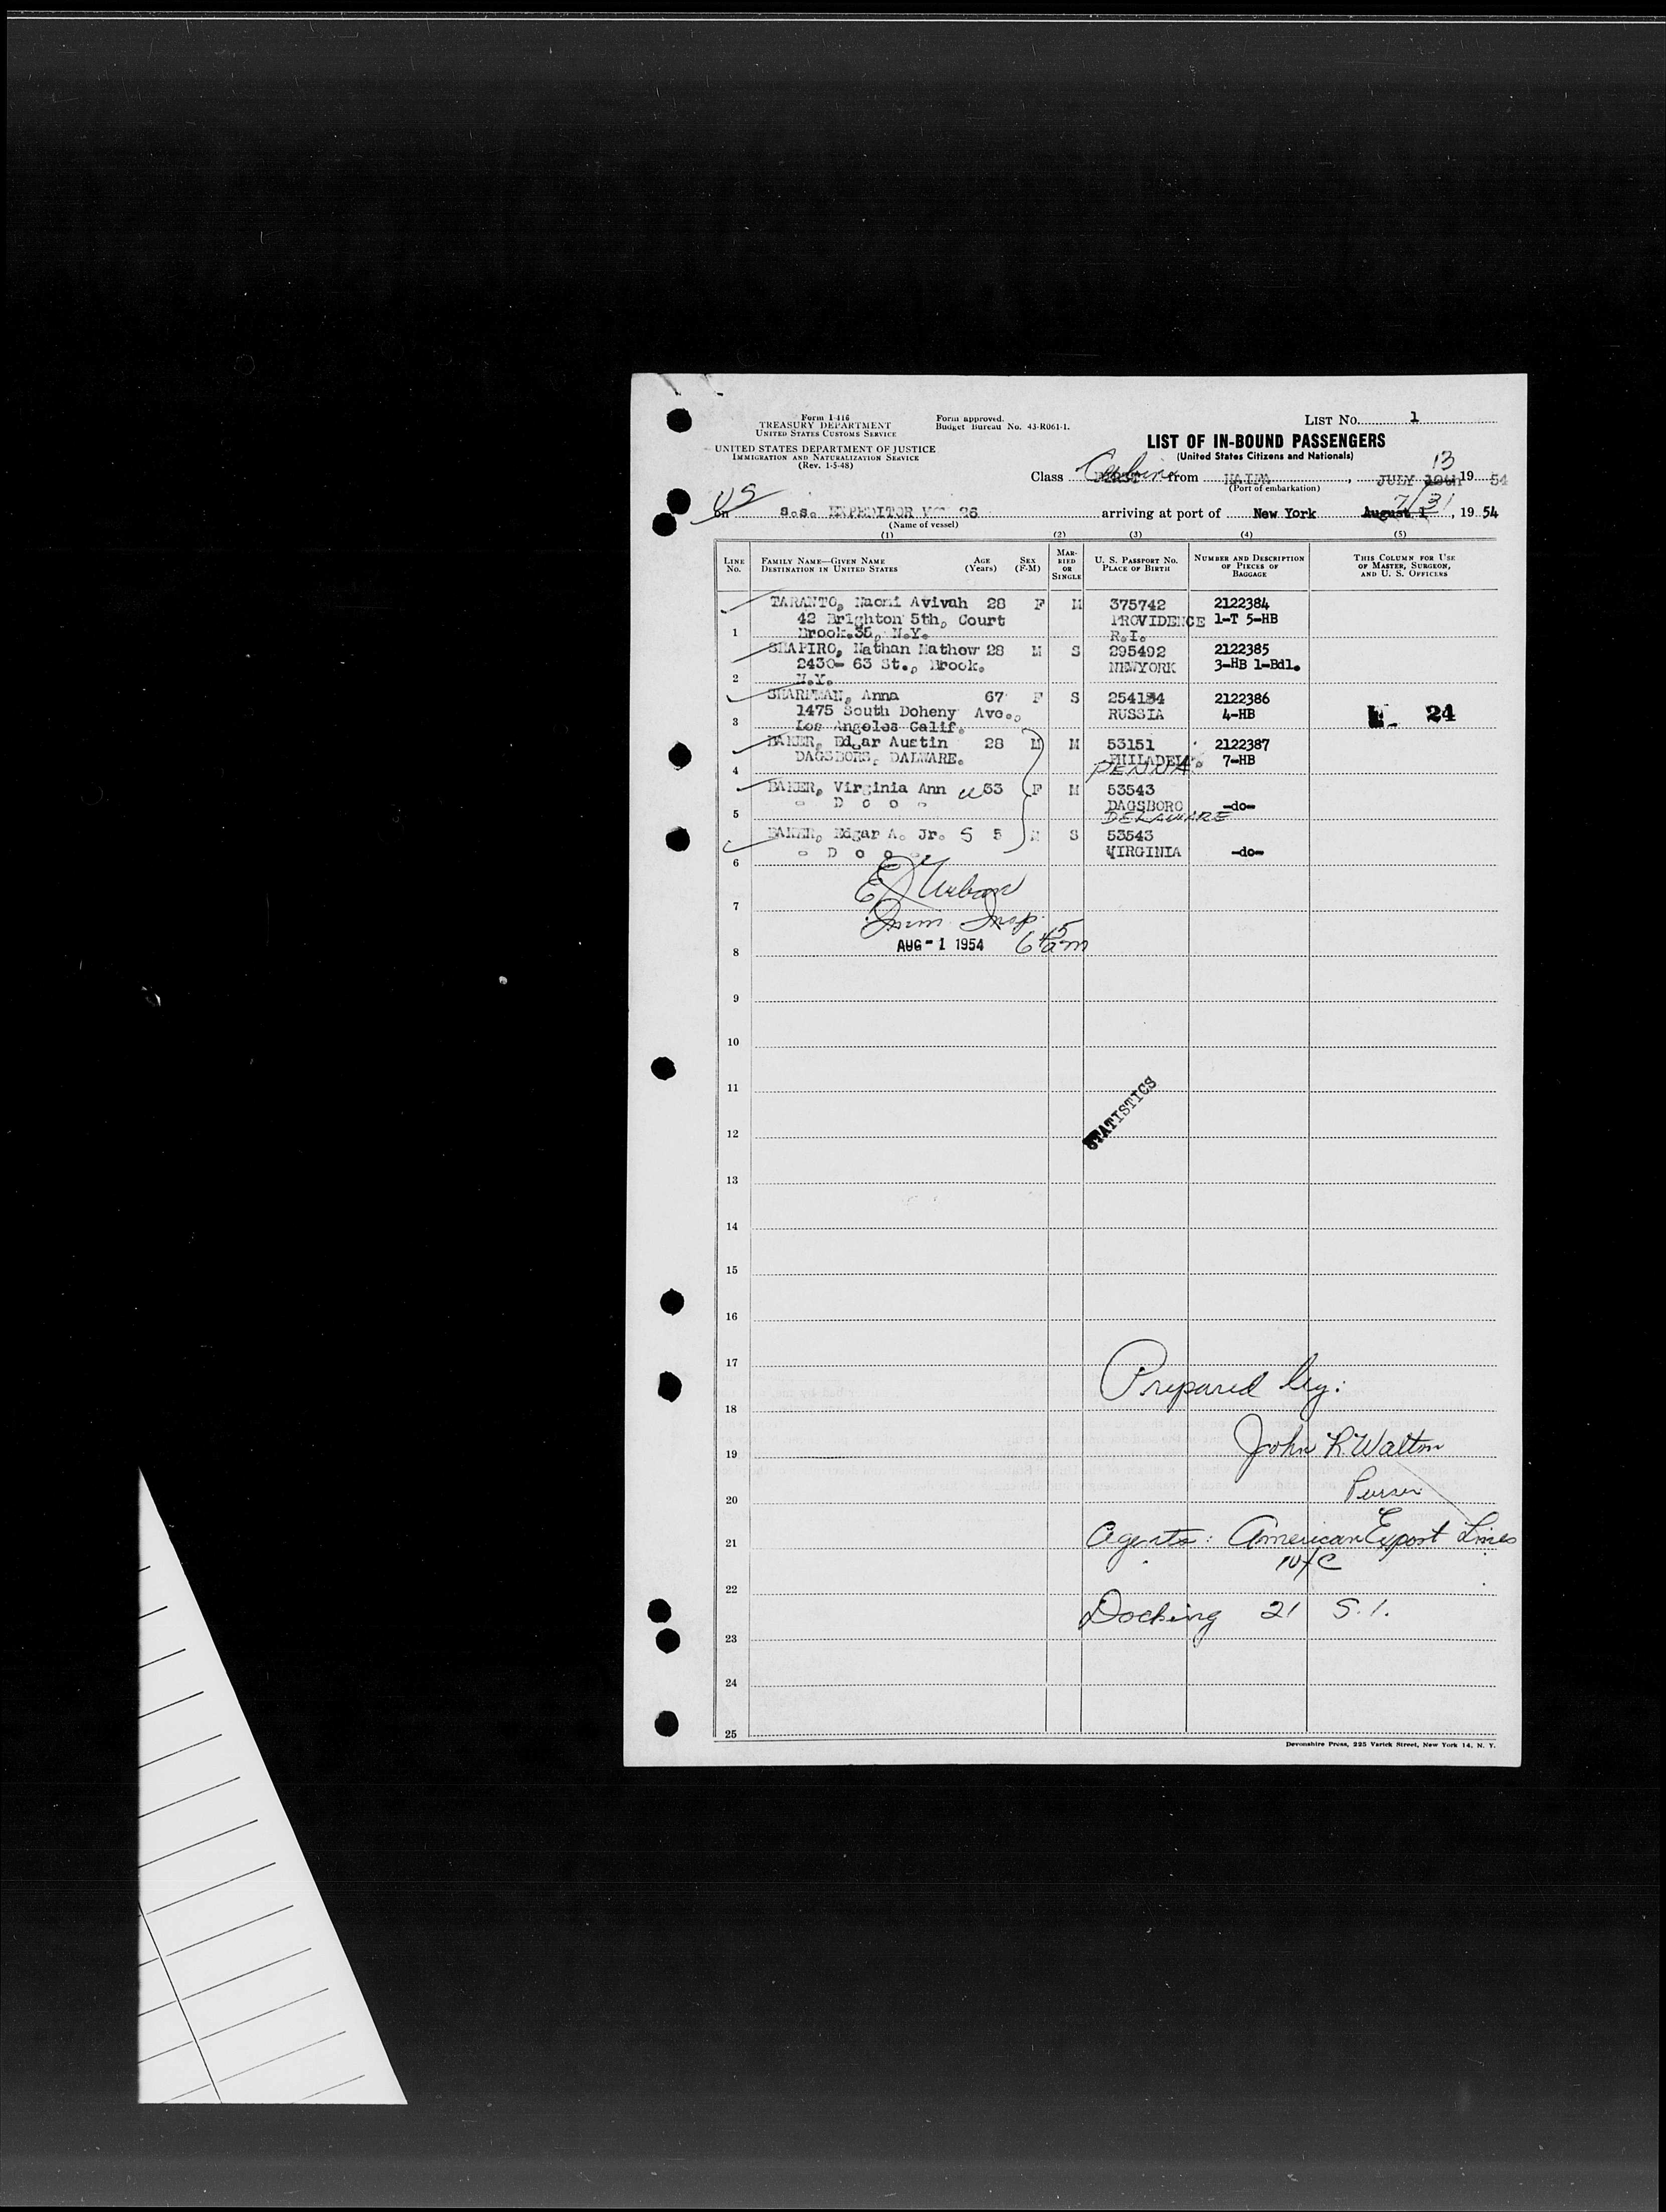 Form I-416
TREASURY DEPARTMENT
UNITED STATES CUSTOMS SERVICE
UNITED STATES DEPARTMENT OF JUSTICE
IMMIGRATION AND NATURALIZATION SERVICE
(Rev. 1-5-48)
Form approved.
Budget Bureau No. 43-R061-1.
LIST No. 1
LIST OF IN-BOUND PASSENGERS
(United States Citizens and Nationals)
13
Class Cabin from HAIFA, JULY 19 54
(Port of embarkation)
US
7/31
on S.S. EXPEDITOR 26 arriving at port of New York August 1, 19 54
(Name of vessel)
(1) (2) (3) (4) (5)
LINE No.
FAMILY NAME—GIVEN NAME
DESTINATION IN UNITED STATES
AGE (Years)
SEX (F-M)
MARRIED OR SINGLE
U. S. PASSPORT NO.
PLACE OF BIRTH
NUMBER AND DESCRIPTION OF PIECES OF BAGGAGE
THIS COLUMN FOR USE OF MASTER, SURGEON, AND U. S. OFFICERS
TARANTO, Naomi Avivah 28 F M 375742 2122384
42 Brighton 5th, Court PROVIDENCE 1-T 5-HB
1 Brook.35, N.Y. R.I.
SHAPIRO, Nathan Mathew 28 M S 295492 2122385
2430- 63 St., Brook. NEWYORK 3-HB 1-Bdl.
2 N.Y.
SHARFMAN, Anna 67 F S 254134 2122386
1475 South Doheny Ave., RUSSIA 4-HB 24
3 Los Angeles Calif.
BAKER, Edgar Austin 28 M M 53151 2122387
DAGSBORS, DALWARE. PHILADELA. 7-HB
4 PENNA
BAKER, Virginia Ann 33 F M 53543
- D o o - DAGSBORO -do-
5 DELAWARE
BAKER, Edgar A. Jr. S 5 M S 53543
- D o o - VIRGINIA -do-
6
7
Imm. Insp.
8 AUG - 1 1954 6 45 am
9
10
11
STATISTICS
12
13
14
15
16
17
Prepared by:
18
John R. Walton
19
Purser
20
Agents: American Export Lines
21
NYC
22
Docking 21 S.I.
23
24
25
Devonshire Press, 225 Varick Street, New York 14, N. Y.